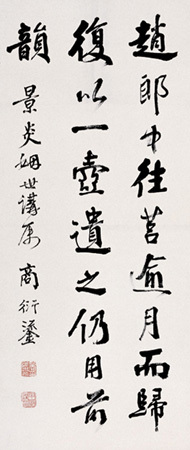 趙郎中往莒逾月而歸
復以一壺遺之仍用前
韻
景炎姻世講屬 商衍鎏